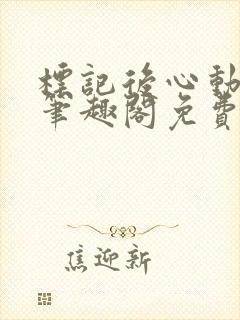 標記後心動
筆趣閣免費
焦迎新